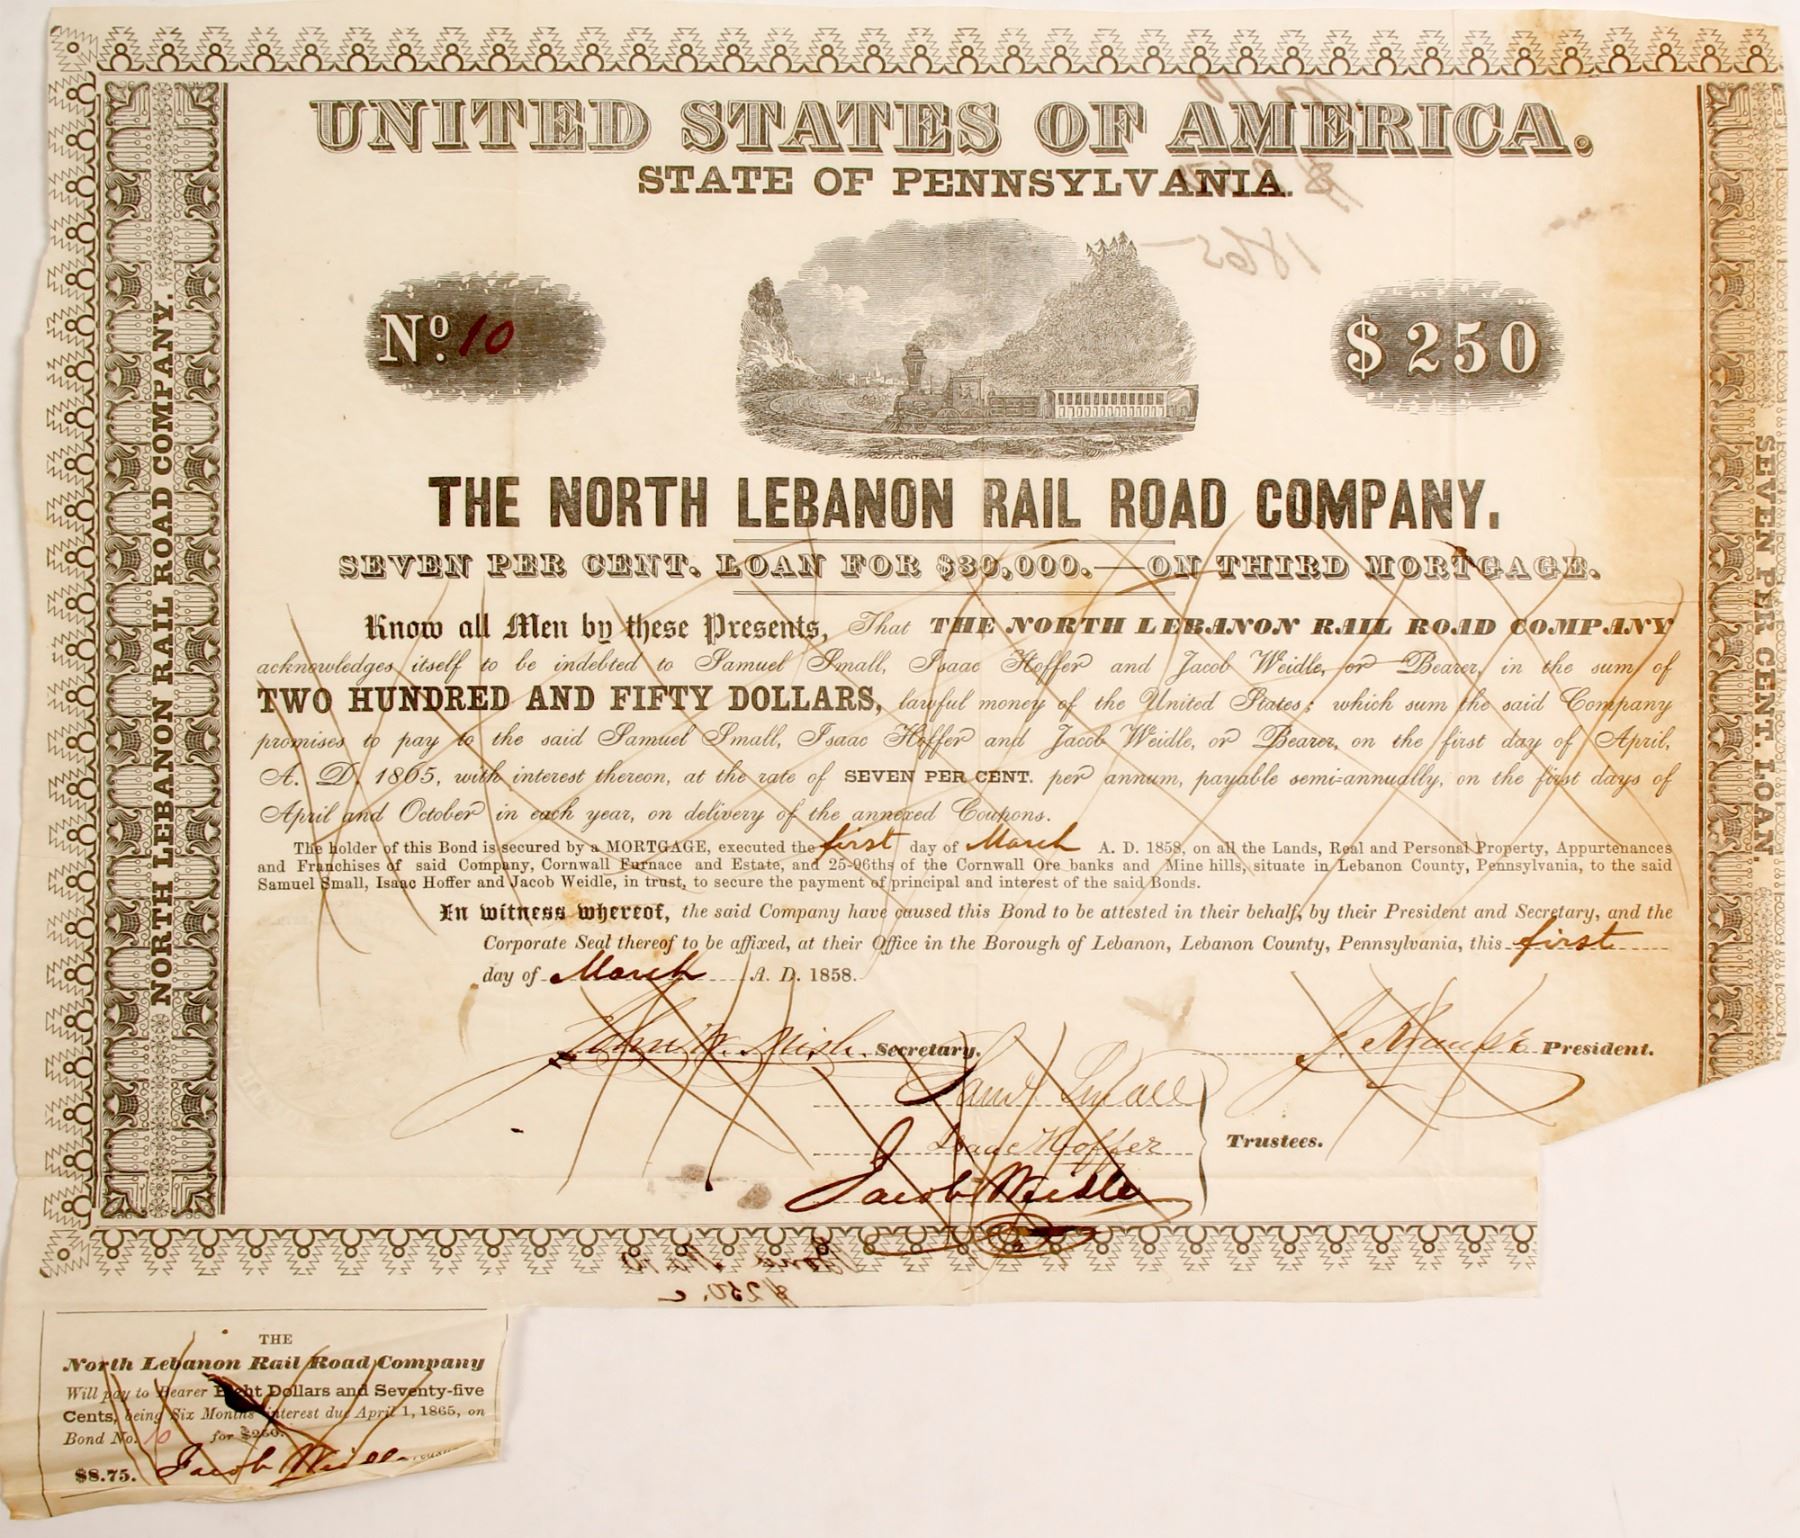 UNITED STATES OF AMERICA.
STATE OF PENNSYLVANIA.
No. 10
$250
THE NORTH LEBANON RAIL ROAD COMPANY.
SEVEN PER CENT. LOAN FOR $30,000.—ON THIRD MORTGAGE.
Know all Men by these Presents, That THE NORTH LEBANON RAIL ROAD COMPANY
acknowledges itself to be indebted to Samuel Small, Isaac Hoffer and Jacob Weidle, or Bearer, in the sum of
TWO HUNDRED AND FIFTY DOLLARS, lawful money of the United States; which sum the said Company
promises to pay to the said Samuel Small, Isaac Hoffer and Jacob Weidle, or Bearer, on the first day of April,
A. D. 1865, with interest thereon, at the rate of SEVEN PER CENT. per annum, payable semi-annually, on the first days of
April and October in each year, on delivery of the annexed Coupons.
The holder of this Bond is secured by a MORTGAGE, executed the first day of March A. D. 1858, on all the Lands, Real and Personal Property, Appurtenances
and Franchises of said Company, Cornwall Furnace and Estate, and 25-96ths of the Cornwall Ore banks and Mine hills, situate in Lebanon County, Pennsylvania, to the said
Samuel Small, Isaac Hoffer and Jacob Weidle, in trust, to secure the payment of principal and interest of the said Bonds.
In witness whereof, the said Company have caused this Bond to be attested in their behalf, by their President and Secretary, and the
Corporate Seal thereof to be affixed, at their Office in the Borough of Lebanon, Lebanon County, Pennsylvania, this first
day of March A. D. 1858.
John W. Mish. Secretary.
President.
Saml Small
Isaac Hoffer
Trustees.
Jacob Weidle
NORTH LEBANON RAIL ROAD COMPANY.
SEVEN PER CENT. LOAN.
No 10
1865
$250.
THE
North Lebanon Rail Road Company
Will pay to Bearer Eight Dollars and Seventy-five
Cents, being Six Months interest due April 1, 1865, on
Bond No. 10 for $250.
$8.75. Jacob Weidle